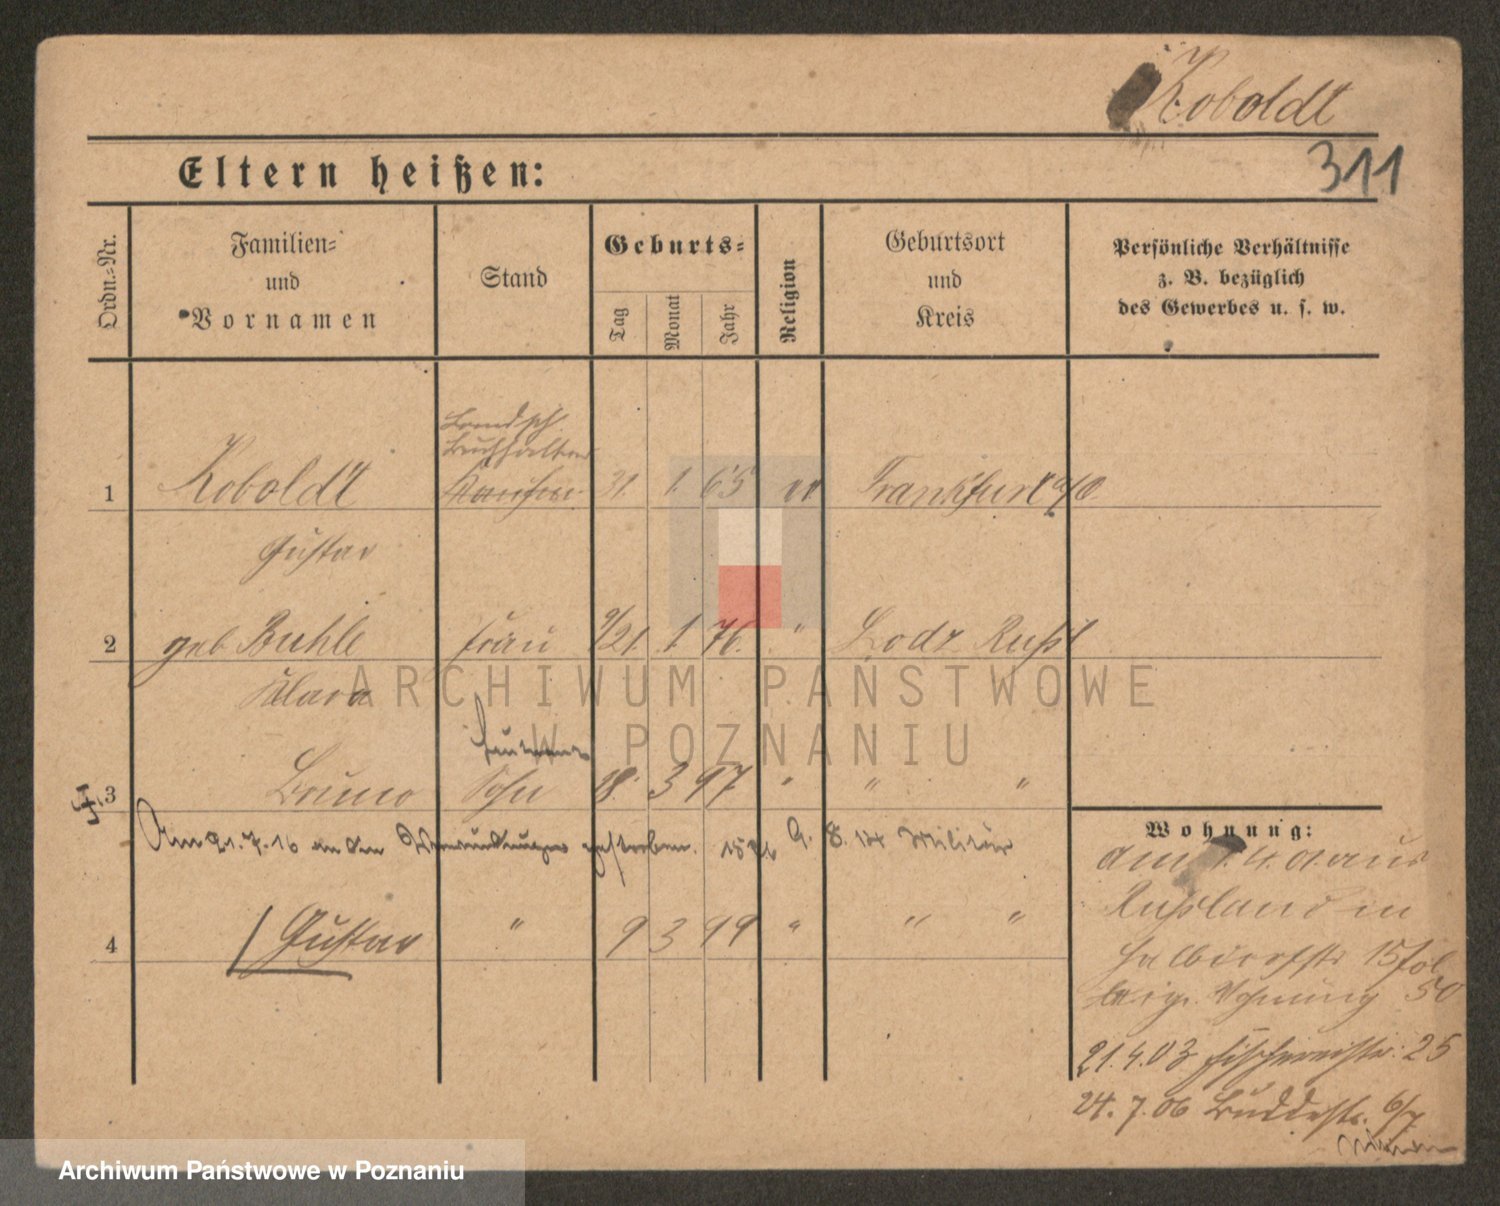 Koboldt
311
Eltern heißen:
Ordn.-Nr.
Familien- und Vornamen
Stand
Geburts-
Tag
Monat
Jahr
Religion
Geburtsort und Kreis
Persönliche Verhältnisse
z. B. bezüglich
des Gewerbes u. s. w.
Landsch.
Buchhalter
1 Koboldt Kaufm. 31. 1. 65 ev Frankfurt a/O.
Gustav
2 geb Buhle Frau 9/21. 1. 76. " Lodz Rußl
Klara
3 Bruno Sohn 18. 3 97 " " "
Am 21. 7. 16 an den gestorben. Militär
4 Gustav " 9 3 99 " " "
Wohnung:
am 1. 4. 01 aus
Russland in
Halbdorfstr 15
Wohnung 50
21. 4. 03 Fischereistr. 25
24. 7. 06 Buddestr. 6/7
ARCHIWUM PAŃSTWOWE
W POZNANIU
Archiwum Państwowe w Poznaniu